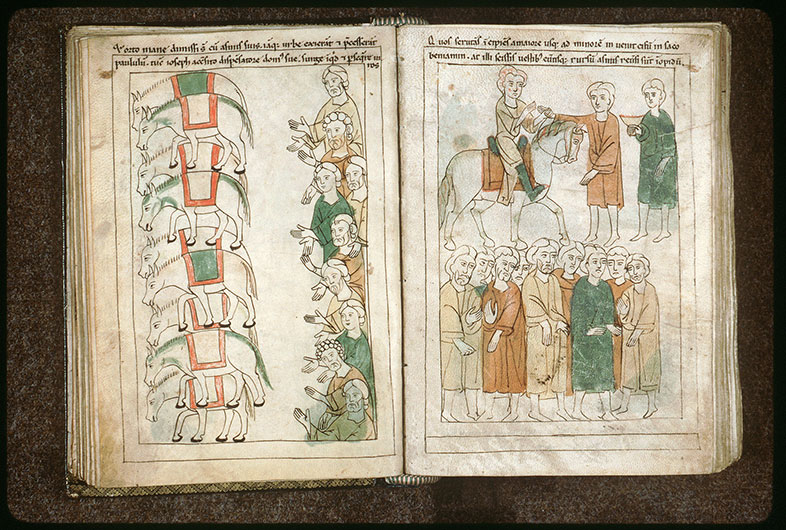 Et orto mane dimissi s̄ cū asinis suis. iāq; urbē exierāt ⁊ ꝓcesserāt
paululū. tūc ioseph accersito dispēsatore dom' sue. surge īqd ⁊ ꝑsequere ui
ros
Quos scrutat' īcipiēs a maiore usq; ad minorē inuenit cifū in saco
beniamin. at illi scissis uestib; eūtisq; rursū asinis reūsi sūt ī opidū.